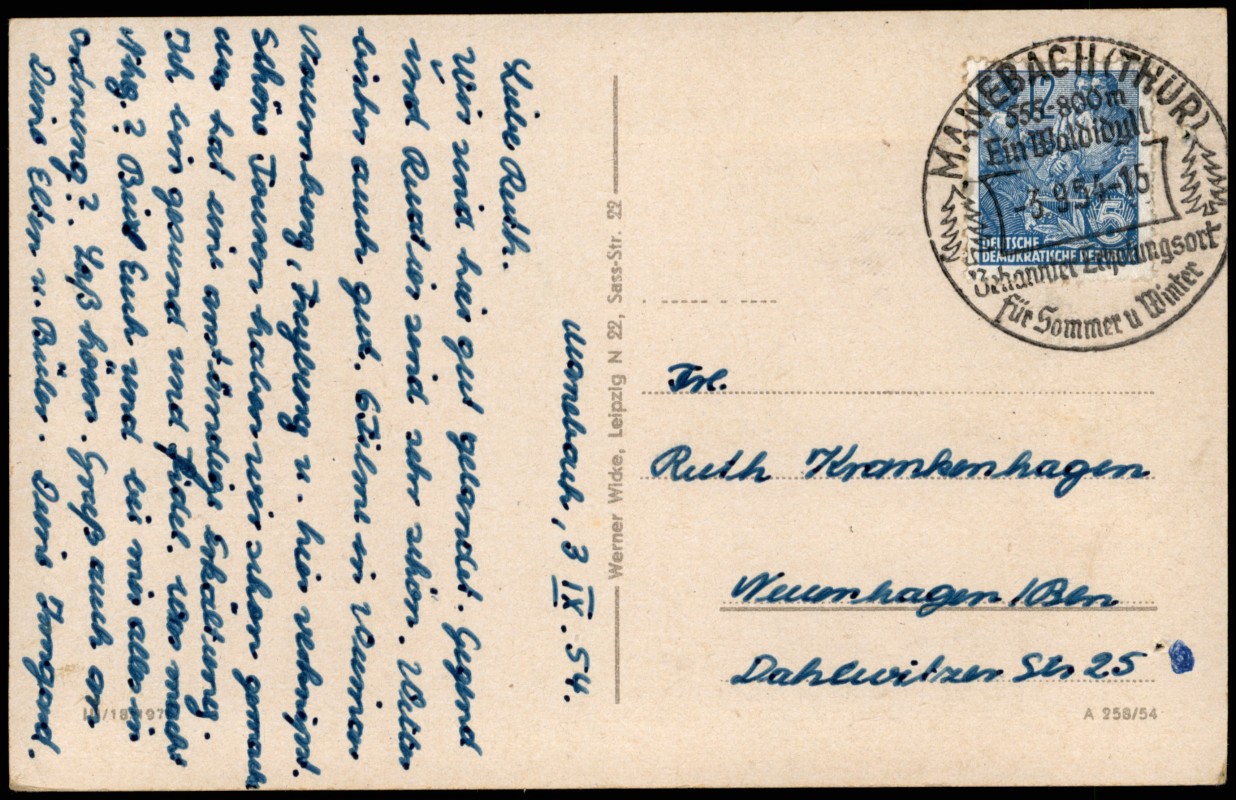 Manebach, 3 IX. 54.
Liebe Ruth.
Wir sind hier gut gelandet. Gegend
und Quartier sind sehr schön. Wetter
bisher auch gut. 6 Filme in Weimar
Naumburg, Freyburg u. hier verknipst.
Schöne Touren haben wir schon gemacht
nur hat uns anständige Erkältung.
Ich bin gesund und fidel. Was macht
Ahg.? Bei Euch und bei mir alles in
Ordnung? Laß hören. Grüß auch an
Deine Eltern u. Deine Irmgard.
Werner Wicke, Leipzig N 22, Sass-Str. 22
III/18/197
MANEBACH (THÜR)
555-800m
Ein Waldidyll
-3.9.54-15
Bekannter Erholungsort
für Sommer u Winter
12
5
DEUTSCHE
DEMOKRATISCHE REPUBLIK
Frl.
Ruth Krankenhagen
Neuenhagen /Bln
Dahlwitzer Str 25
A 258/54